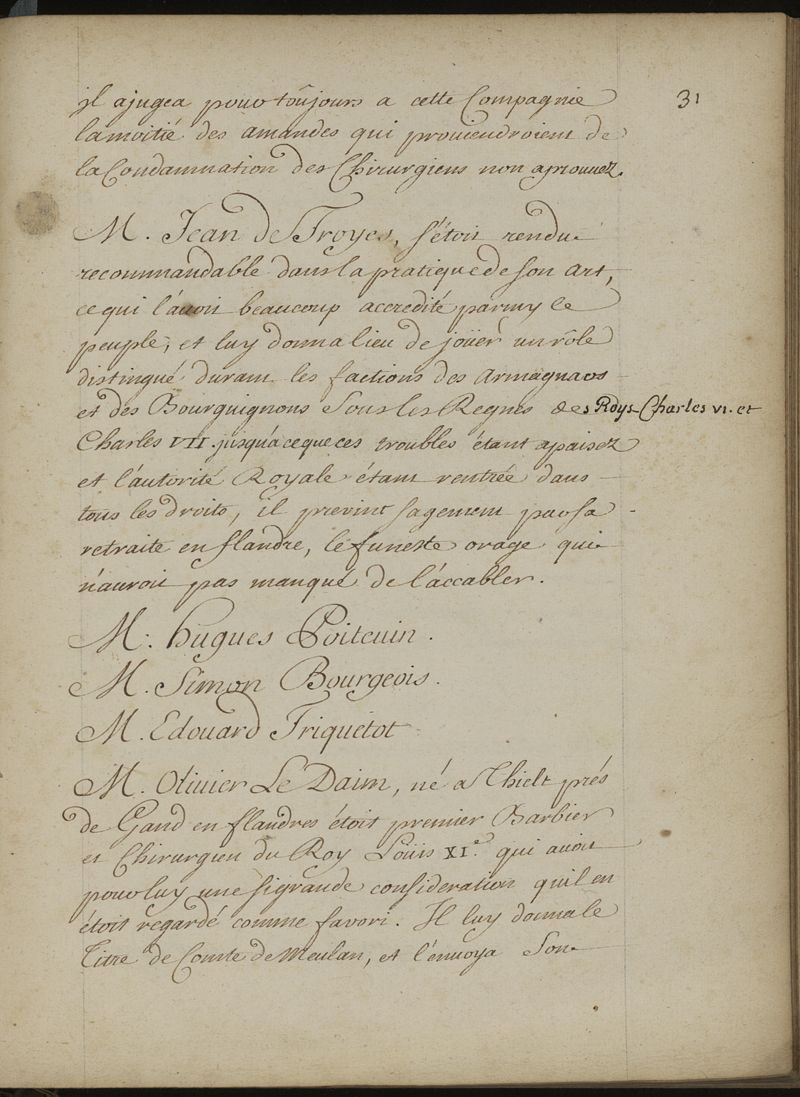 31
jl ajugea pour toûjours a cette Compagnie
la moitié des amandes qui prouiendroient de
la Condamnation des Chirurgiens non aprouuez.
M. Jean De Troyes, s'étoit rendu
recommandable dans la pratique de son art,
ce qui l'auoit beaucoup accredité parmy le
peuple, et luy donna lieu de joüer un rôle
distingué durant les factions des Armagnacs
et des Bourguignons sous les Regnes des Roys Charles VI. et
Charles VII. jusqu'a ce que ces troubles étant apaisez
et l'autorité Royale étant rentrée dans
tous les droits, il preuint sagement par sa
retraite en flandre, le funeste orage qui
n'auroit pas manqué de l'accabler.
M. hugues Poiteuin.
M. Simon Bourgeois.
M. Edouard Triquetot
M. Oliuier Le Daim, né a Thielt prés
de Gand en flandres étoit premier Barbier
et Chirurgien du Roy Loüis XI.e qui auoit
pour luy une si grande consideration qu'il en
étoit regardé comme favori. Il luy donna le
Titre de Comte de Meulan, et l'enuoya Son